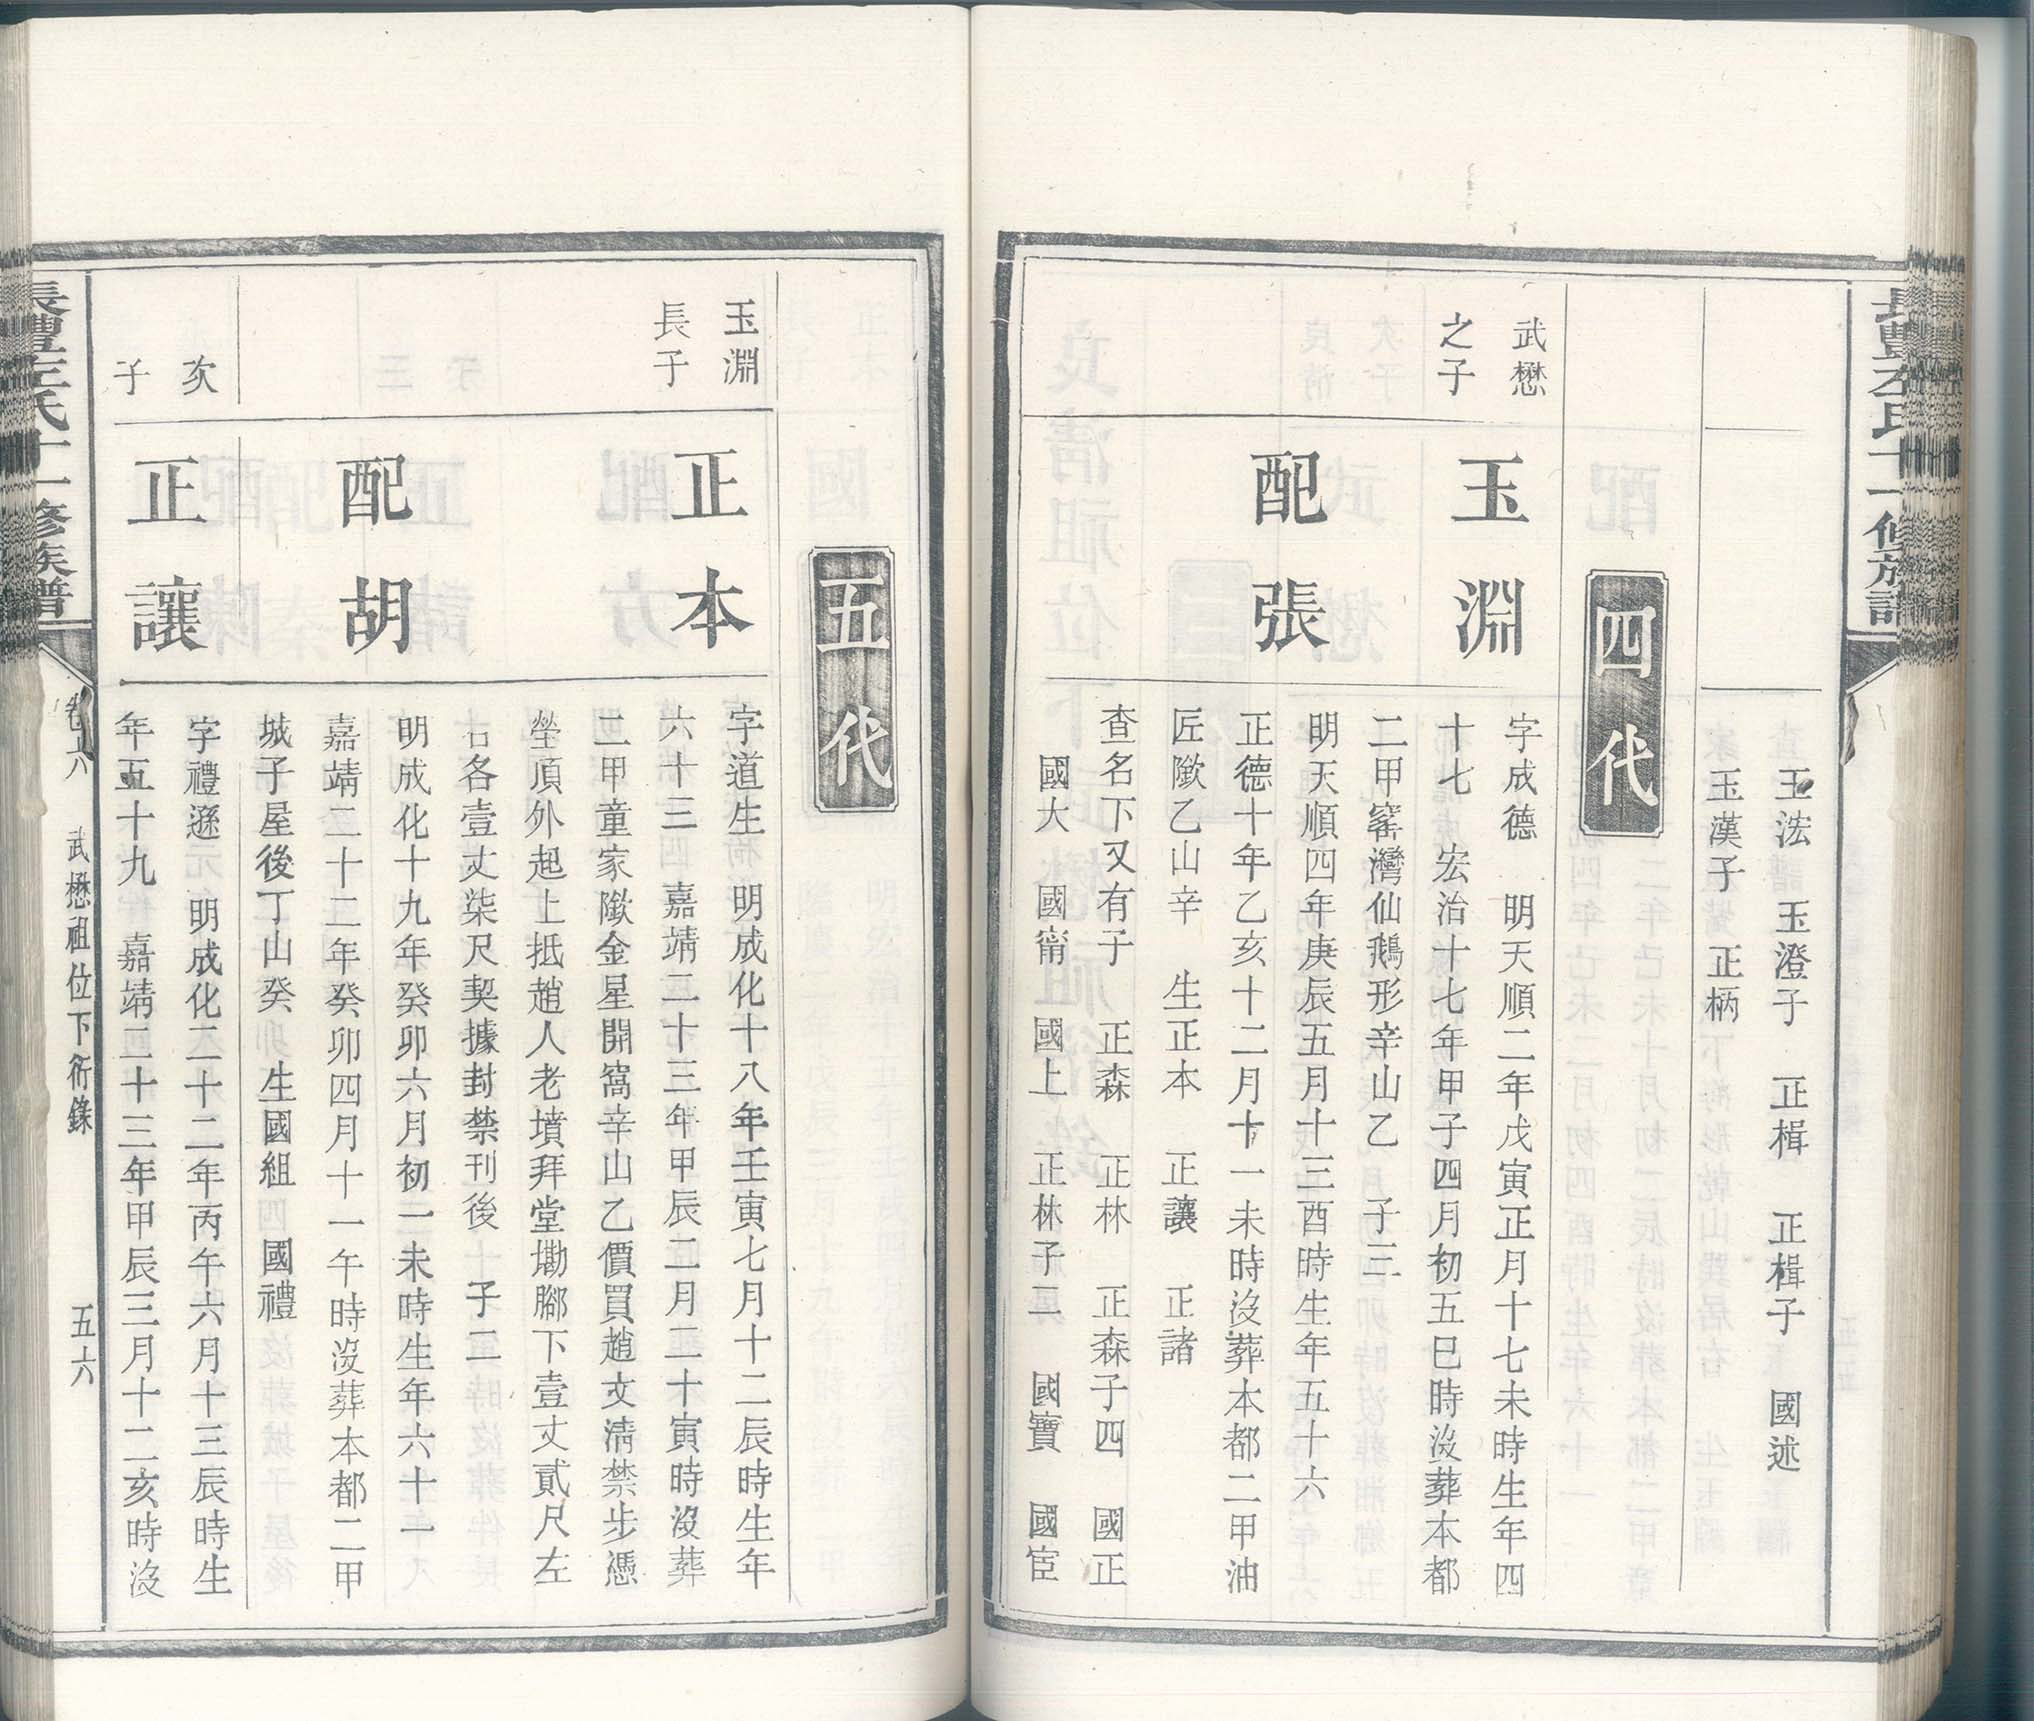 長豐左氏十一修族譜
玉浤　玉澄子　正楫　正楫子　國述
玉漢子　正柄
四代
武懋
之子
玉淵
字成德　明天順二年戊寅正月十七未時生年四
十七　宏治十七年甲子四月初五巳時沒葬本都
二甲窰灣仙鵝形辛山乙　子三
配張
明天順四年庚辰五月十三酉時生年五十六
正德十年乙亥十二月十一未時沒葬本都二甲油
匠歞乙山辛　生正本　正讓　正諸
查名下又有子　正森　正林　正森子四　國正
國大　國甯　國上　正林子二　國寶　國宦
五代
玉淵
長子
正本
字道生　明成化十八年壬寅七月十二辰時生年
六十三　嘉靖二十三年甲辰二月二十寅時沒葬
二甲童家歞金星開窩辛山乙價買趙文清禁步憑
塋頂外起上抵趙人老墳拜堂墈腳下壹丈貳尺左
右各壹丈柒尺契據封禁刊後　子二
配胡
明成化十九年癸卯六月初一未時生年六十一
嘉靖二十二年癸卯四月十一午時沒葬本都二甲
城子屋後丁山癸　生國組　國禮
次
子
正讓
字禮遜　明成化二十二年丙午六月十三辰時生
年五十九　嘉靖二十三年甲辰三月十二亥時沒
長豐左氏十一修族譜
卷六　武懋祖位下衍錄　五六